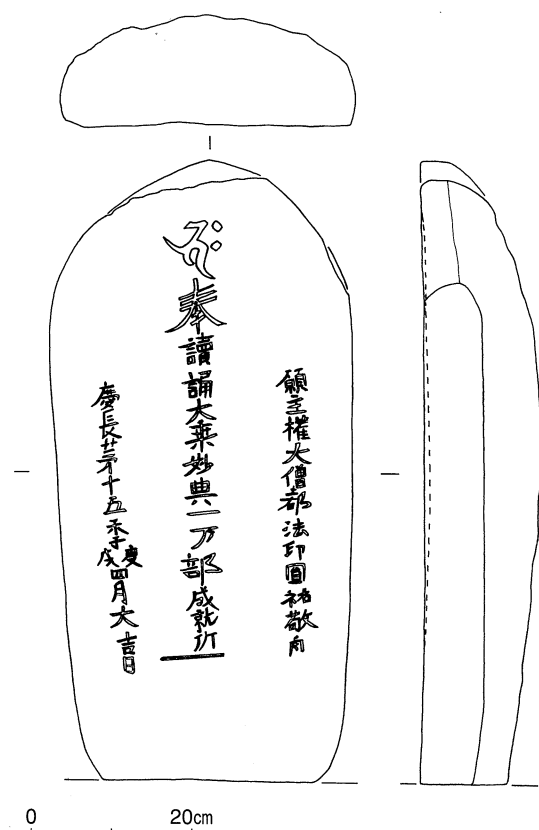 願主權大僧都法印圓祐敬白
奉讀誦大乗妙典一万部成就所
慶長 十五 庚戌四月大吉日
0 20cm